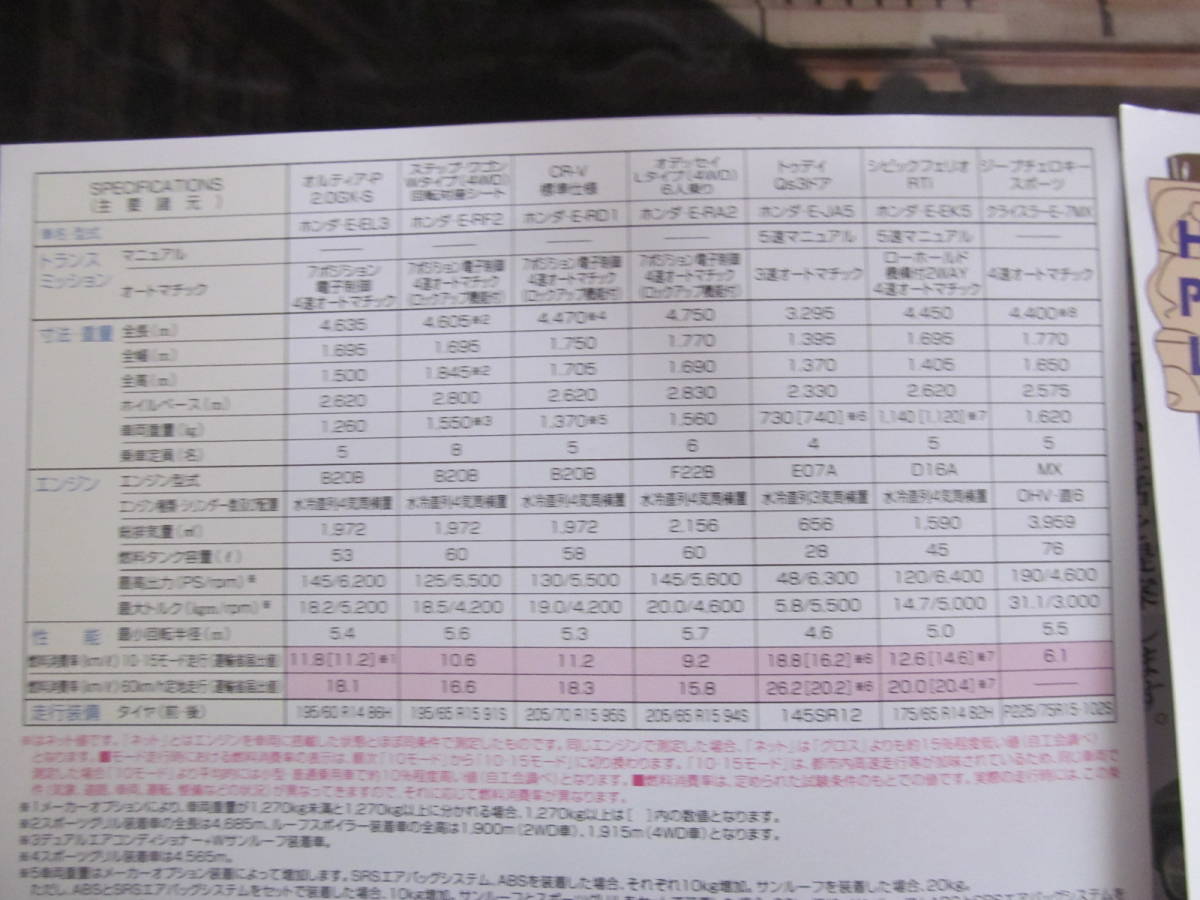 SPECIFICATIONS
(主要諸元)
オルティア-P 2.0GX-S
ステップ・ワゴン Wタイプ(4WD) 回転対座シート
CR-V 標準仕様
オデッセイ Lタイプ(4WD) 6人乗り
トゥデイ Qs3ドア
シビックフェリオ RTi
ジープチェロキー スポーツ
車名・型式 ホンダ・E-EL3 ホンダ・E-RF2 ホンダ・E-RD1 ホンダ・E-RA2 ホンダ・E-JA5 ホンダ・E-EK5 クライスラーE-7MX
トランスミッション マニュアル —— —— —— —— 5速マニュアル 5速マニュアル ——
オートマチック 7ポジション電子制御4速オートマチック 7ポジション電子制御4速オートマチック(ロックアップ機能付) 7ポジション電子制御4速オートマチック(ロックアップ機能付) 7ポジション電子制御4速オートマチック(ロックアップ機能付) 3速オートマチック ローホールド機構付2WAY4速オートマチック 4速オートマチック
寸法・重量 全長(m) 4.635 4.605※2 4.470※4 4.750 3.295 4.450 4.400※8
全幅(m) 1.695 1.695 1.750 1.770 1.395 1.695 1.770
全高(m) 1.500 1.845※2 1.705 1.690 1.370 1.405 1.650
ホイルベース(m) 2.620 2.800 2.620 2.830 2.330 2.620 2.575
車両重量(kg) 1,260 1,550※3 1,370※5 1,560 730[740]※6 1,140[1,120]※7 1,620
乗車定員(名) 5 8 5 6 4 5 5
エンジン エンジン型式 B20B B20B B20B F22B E07A D16A MX
エンジン種類・シリンダー数及び配置 水冷直列4気筒横置 水冷直列4気筒横置 水冷直列4気筒横置 水冷直列4気筒横置 水冷直列3気筒横置 水冷直列4気筒横置 OHV・直6
総排気量(㎤) 1,972 1,972 1,972 2,156 656 1,590 3,959
燃料タンク容量(ℓ) 53 60 58 60 28 45 76
最高出力(PS/rpm)※ 145/6,200 125/5,500 130/5,500 145/5,600 48/6,300 120/6,400 190/4,600
最大トルク(kgm/rpm)※ 18.2/5,200 18.5/4,200 19.0/4,200 20.0/4,600 5.8/5,500 14.7/5,000 31.1/3,000
性能 最小回転半径(m) 5.4 5.6 5.3 5.7 4.6 5.0 5.5
燃料消費率(km/ℓ)10・15モード走行(運輸省届出値) 11.8[11.2]※1 10.6 11.2 9.2 18.8[16.2]※6 12.6[14.6]※7 6.1
燃料消費率(km/ℓ)60km/h定地走行(運輸省届出値) 18.1 16.6 18.3 15.8 26.2[20.2]※6 20.0[20.4]※7 ——
走行装備 タイヤ(前・後) 195/60 R14 86H 195/65 R15 91S 205/70 R15 96S 205/65 R15 94S 145SR12 175/65 R14 82H P225/75R15-102S
※はネット値です。「ネット」とはエンジンを車両に搭載した状態とほぼ同条件で測定したものです。同じエンジンで測定した場合、「ネット」は「グロス」よりも約15%程度低い値(自工会調べ)
となります。■モード走行時における燃料消費率の表示は、順次「10モード」から「10・15モード」に切り換わります。「10・15モード」は、都市内高速走行等が加味されているため、同じ車両で
測定した場合「10モード」より平均的には小型・普通乗用車で約10%程度高い値(自工会調べ)となります。■燃料消費率は、定められた試験条件のもとでの値です。実際の走行時には、この条
件(気象、道路、車両、運転、整備などの状況)が異なってきますので、それに応じて燃料消費率が異なります。
※1メーカーオプションにより、車両重量が1,270kg未満と1,270kg以上に分かれる場合、1,270kg以上は[ ]内の数値となります。
※2スポーツグリル装着車の全長は4.685m、ルーフスポイラー装着車の全高は1.900m(2WD車)、1,915m(4WD車)となります。
※3デュアルエアコンディショナー+Wサンルーフ装着車。
※4スポーツグリル装着車は4.565m。
※5車両重量はメーカーオプション装着によって増加します。SRSエアバッグシステム、ABSを装着した場合、それぞれ10kg増加。サンルーフを装着した場合、20kg。
ただし、ABSとSRSエアバッグシステムをセットで装着した場合、10kg増加。
H
P
L